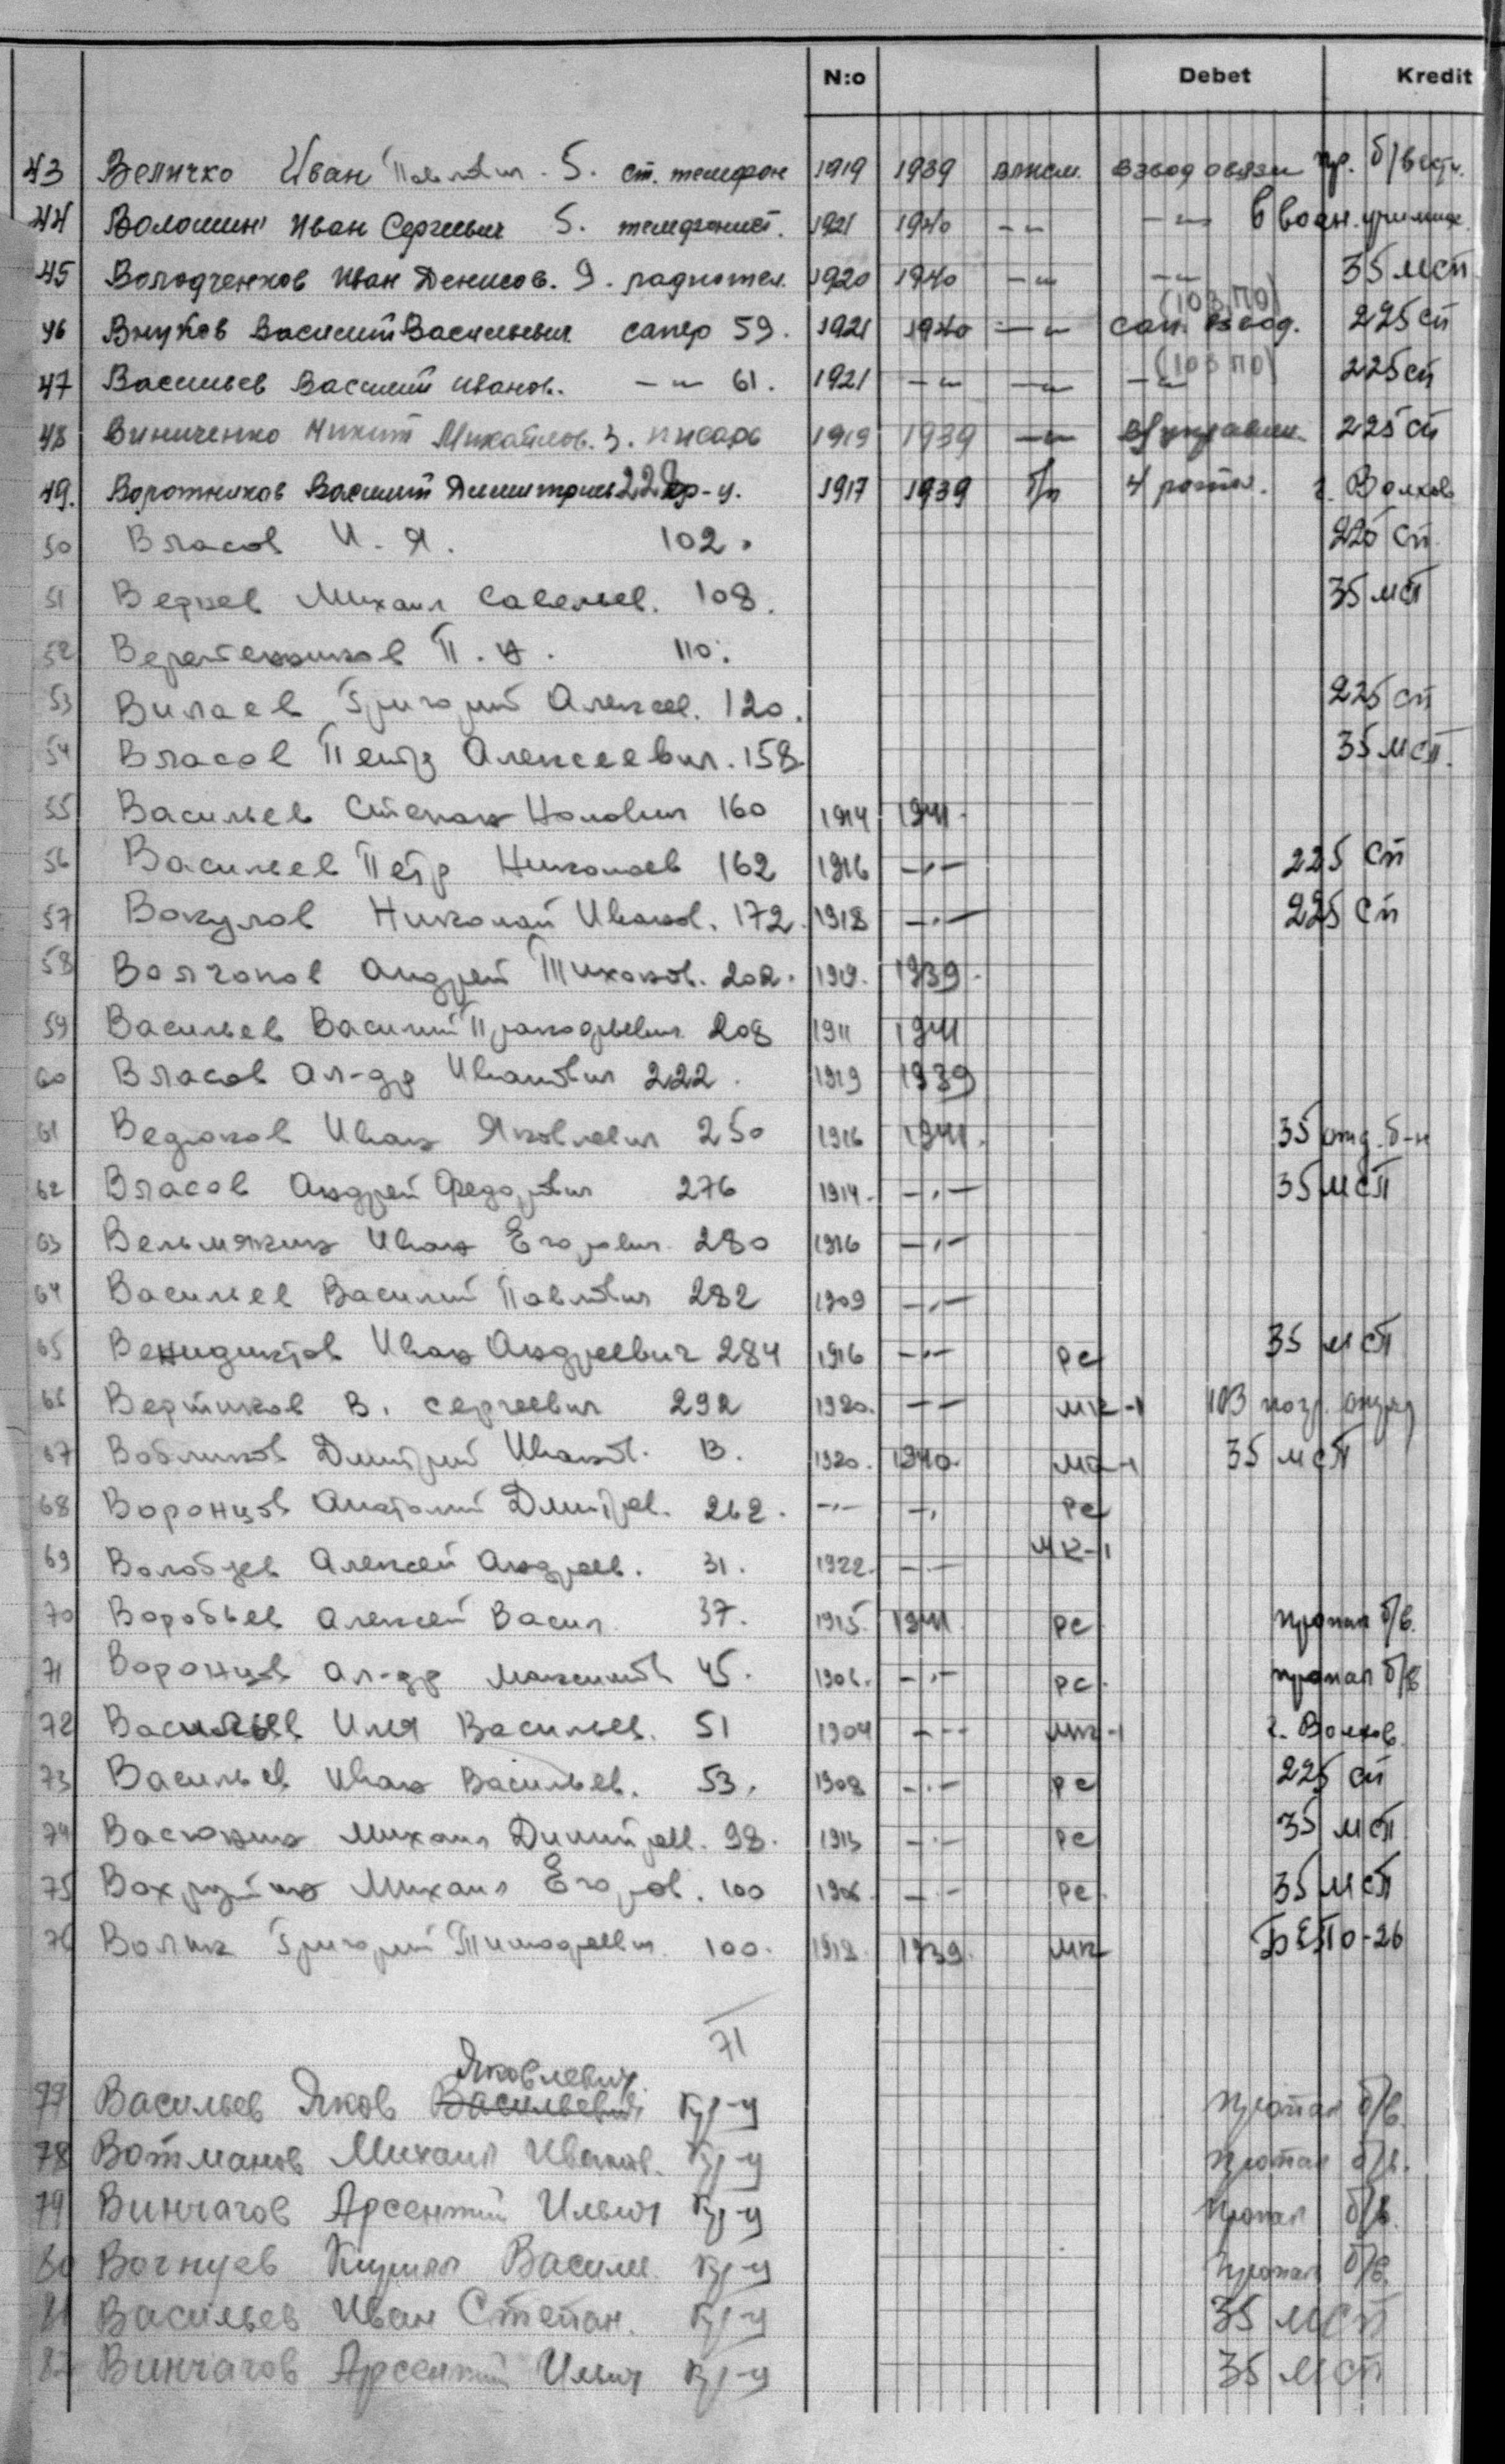 N:o Debet Kredit
43 Величко Иван Павлович. 5. ст. телефон 1919 1939 влксм. взвод связи пр. б/вест.
44 Волошин Иван Сергеевич 5. телефонист. 1921 1940 -〃- -〃- в воен. училище.
45 Володченков Иван Денисов. 9. радиотел. 1920 1940 -〃- -〃- 35 мсп
(103 ПО)
46 Внуков Василий Васильевич сапер 59. 1921 1940 -〃- сап. взвод. 225 сп
(103 ПО)
47 Васильев Василий Иванов. -〃- 61. 1921 -〃- -〃- -〃- 225 сп
48 Виниченко Никит Михайлов. 3. писарь 1919 1939 -〃- 225 сп
49. Воротников Василий Димитриев 228 кр-ц. 1917 1939 б/п 4 рота. г. Волхов
50 Власов И. Я. 102. 225 сп.
51 Михаил Савельев. 108. 35 мсп
52 Веретенников П. 110.
53 Вилаев Григорий Алексеев. 120. 225 сп
54 Власов Петр Алексеевич. 158 35 мсп.
55 Васильев Степан 160 1914 1941.
56 Васильев Петр Николаев 162 1916 -〃- 225 сп
57 Вакулов Николай Иванов. 172. 1918 -〃- 225 сп
58 Волчонов Андрей Тихонов. 202. 1939.
59 Васильев Василий 208 1911 1941
60 Власов Ал-др Иванович 222. 1919 1939
61 Ведюков Иван Яковлевич 250 1916 1941. 35 отд. б-н
62 Власов Андрей Федорович 276 1914. -〃- 35 мсп
63 Вельмякин Иван Егорович. 280 1916 -〃-
64 Васильев Василий Павлович 282 1909 -〃-
65 Венидиктов Иван Андреевич 284 1916 -〃- рс 35 мсп
66 Вертиков В. Сергеевич 292 1920. -〃- мк-1 103 погр. отряд
67 Вобликов Дмитрий Иванов. 13. 1920. 1940. 35 мсп
68 Воронцов Анатолий Дмитрев. 262. -〃- -〃- рс
69 Волобуев Алексей Андреев. 31. 1922. -〃- мк-1
70 Воробьев Алексей Васил. 37. 1915. 1941 рс пропал б/в.
71 Воронцов Ал-др Максимов 45. 1906. -〃- рс. пропал б/в
72 Васильев Илья Васильев. 51 1904 -〃- мк-1 г. Волхов.
73 Васильев Иван Васильев. 53. 1908 -〃- рс 225 сп
74 Васюнин Михаил Димитрев. 98. 1913 -〃- рс 35 мсп
75 Михаил Егоров. 100 1906. -〃- рс. 35 мсп
76 Волик Григорий Тимофеевич. 100. 1918. 1939. мк БЕПО-26
71
Яковлевич.
77 Васильев Яков Васильевич кр-ц пропал б/в.
78 Вотманов Михаил Иванов. кр-ц пропал б/в.
79 Винчагов Арсентий Ильич кр-ц пропал б/в.
80 Вогнуев Кирилл Васил. кр-ц пропал б/в.
81 Васильев Иван Степан. кр-ц 35 мсп
82 Винчагов Арсентий Ильич кр-ц 35 мсп